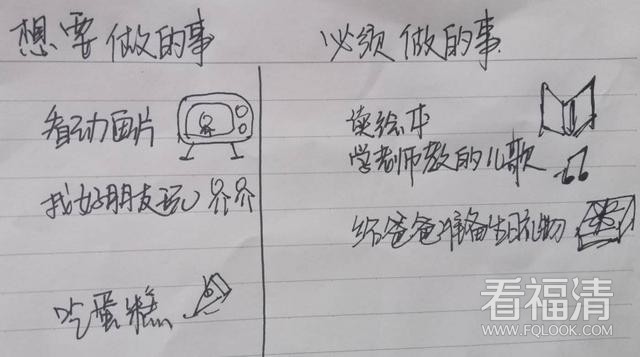 想要做的事
看动画片
找好朋友玩
吃蛋糕
必须做的事
读绘本
学老师教的儿歌
给爸爸准备生日礼物
看福清
WWW.FQLOOK.COM